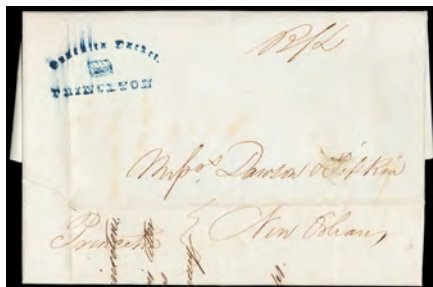 Ouachita Packet.
PRINCETON
B/L
Messrs Dawson & Pipkin
New Orleans
Princeton